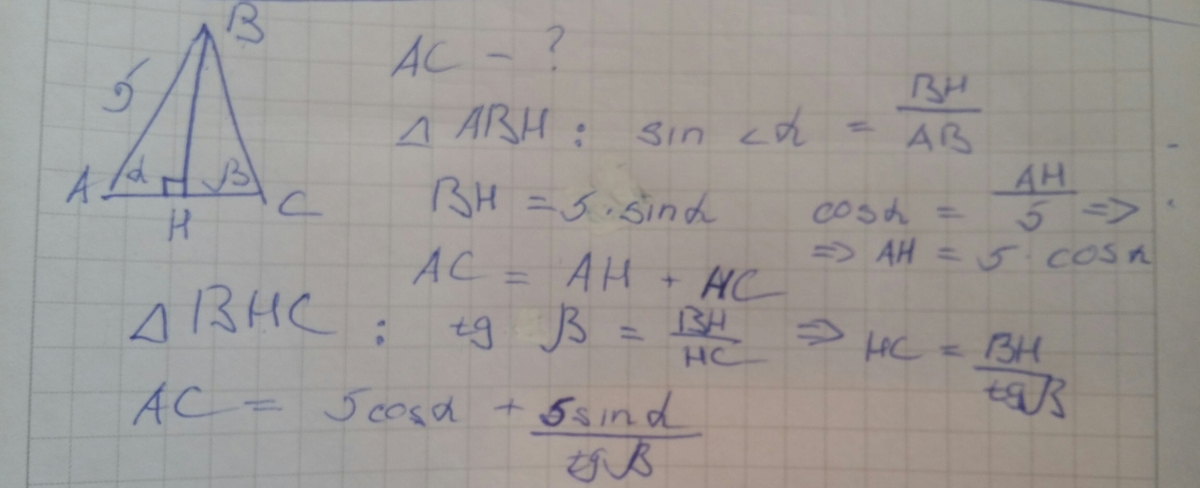 B
5
A α β C
H
AC - ?
Δ ABH : sin ∠α = BH/AB
BH = 5·sinα cosα = AH/5 =>
=> AH = 5·cosα
AC = AH + HC
Δ BHC : tg β = BH/HC => HC = BH/tgβ
AC = 5cosα + 5sinα/tgβ